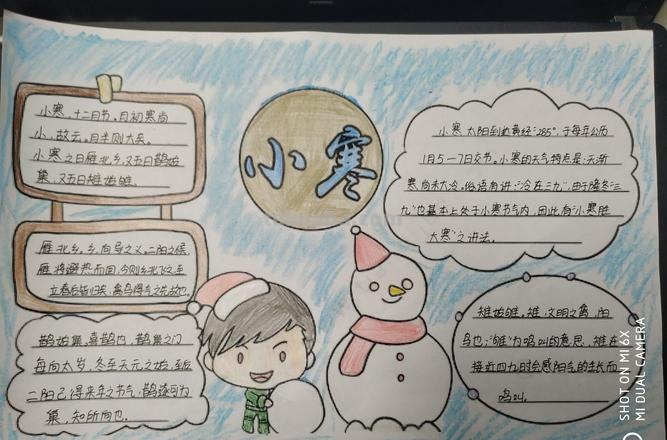 小寒
小寒,十二月节。月初寒尚
小,故云。月半则大矣。
小寒之日雁北乡,又五日鹊始
巢,又五日雉始雊。
雁北乡,乡向导之义。二阳之候,
雁将避热而回,今则乡北飞之,至
立春后皆归矣,禽鸟得气之先故也。
鹊始巢,喜鹊也,鹊巢之门
每向太岁,冬至天元之始,至后
二阳已得来年之节气,鹊遂可为
巢,知所向也。
小寒,太阳到达黄经285°,于每年公历
1月5—7日交节。小寒的天气特点是:天渐
寒,尚未大冷。俗语有讲:"冷在三九",由于隆冬"三
九"也基本上处于小寒节气内,因此有"小寒胜
大寒"之讲法。
雉始雊,雉,文明之禽,阳
鸟也;"雊"为鸣叫的意思,雉在
接近四九时会感阳气的生长而
鸣叫。
SHOT ON MI 6X
MI DUAL CAMERA